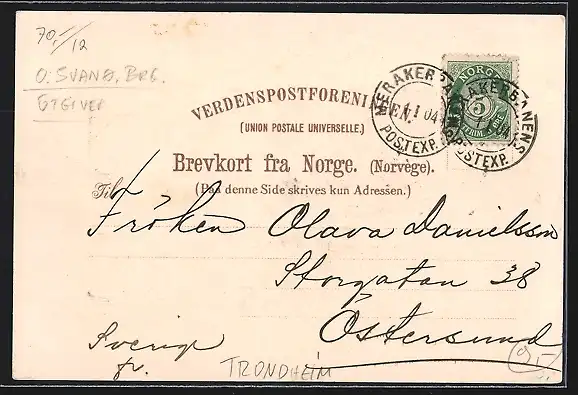 70,-/12
O. SVANØ, BRG.
UTGIVER
VERDENSPOSTFORENINGEN.
(UNION POSTALE UNIVERSELLE.)
NORGE
5
MERAKERBANENS
1 04
POSTEXP.
MERAKERBANENS
POSTEXP.
Brevkort fra Norge. (Norvège).
(Paa denne Side skrives kun Adressen.)
Til
Fröken Olava Danielsson
Storgatan 38
Östersund
Sverige
fr.
TRONDHEIM